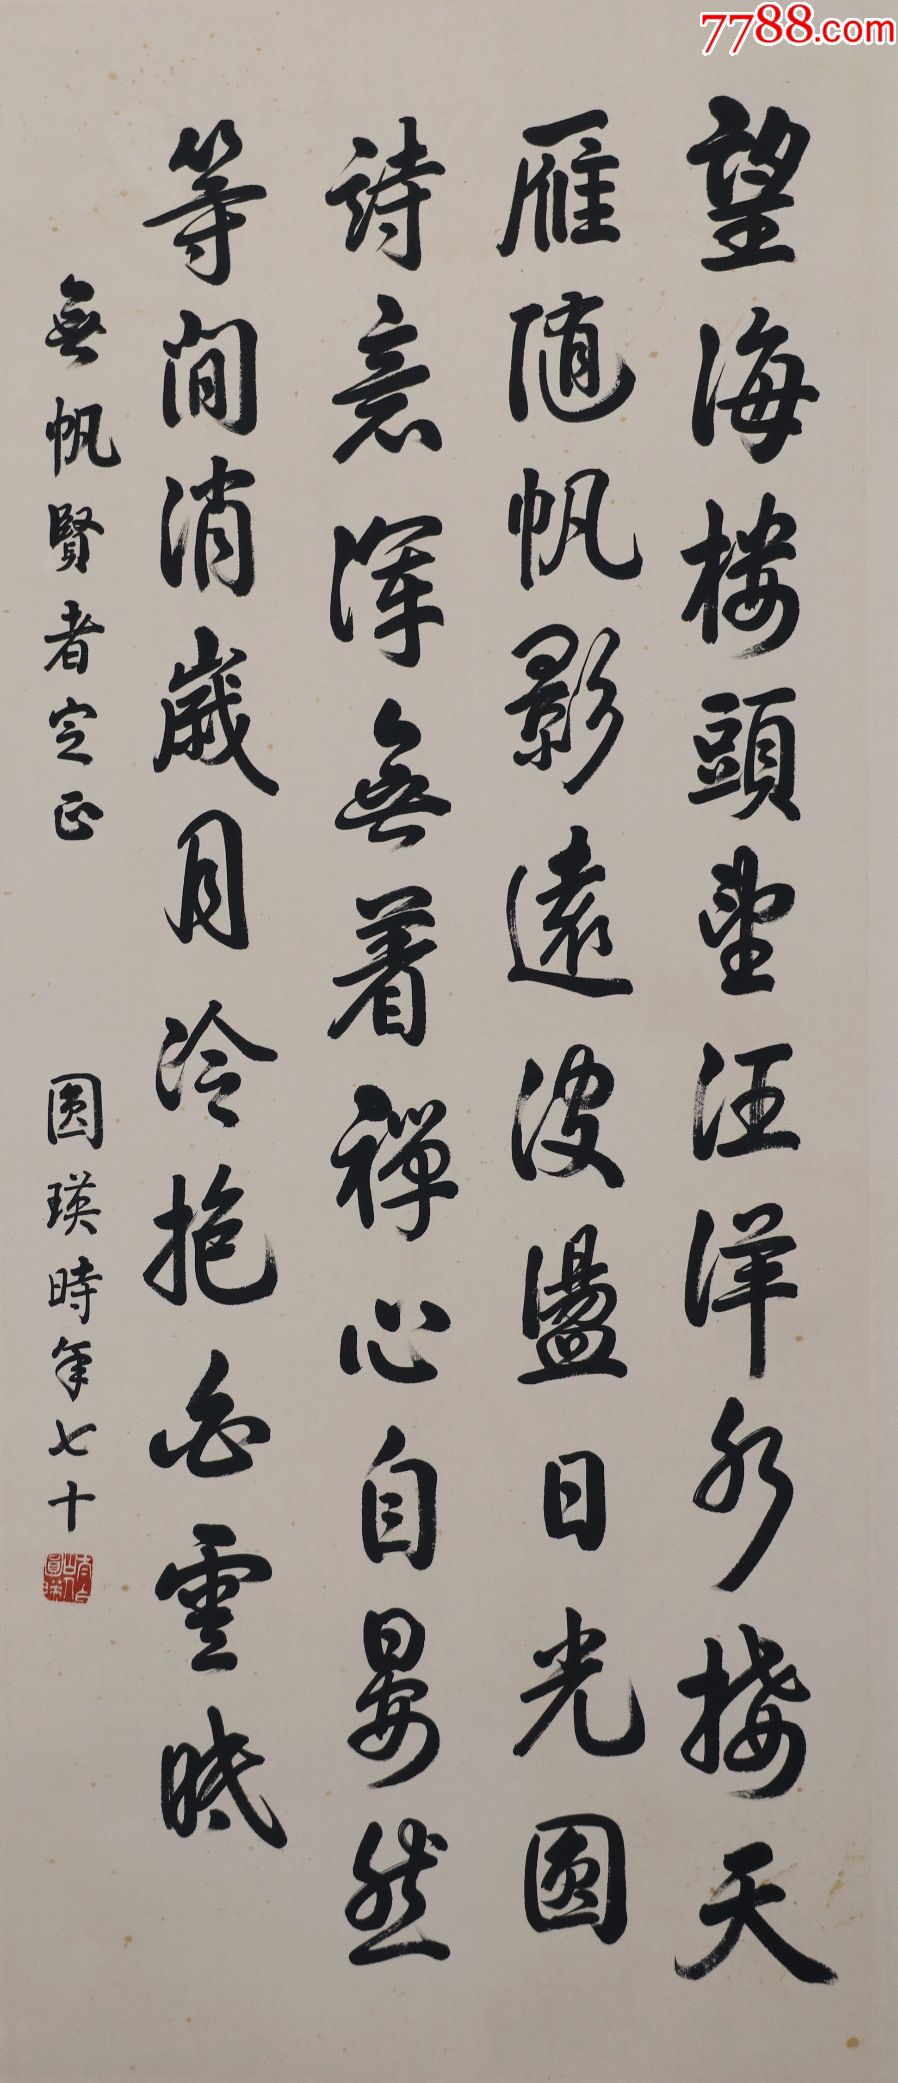 望海楼頭望汪洋水接天
雁随帆影遠波盪日光圆
詩意渾無着禪心自晏然
等間消歲月冷抱白雲眠
無帆賢者定正 圆瑛時年七十
7788.com